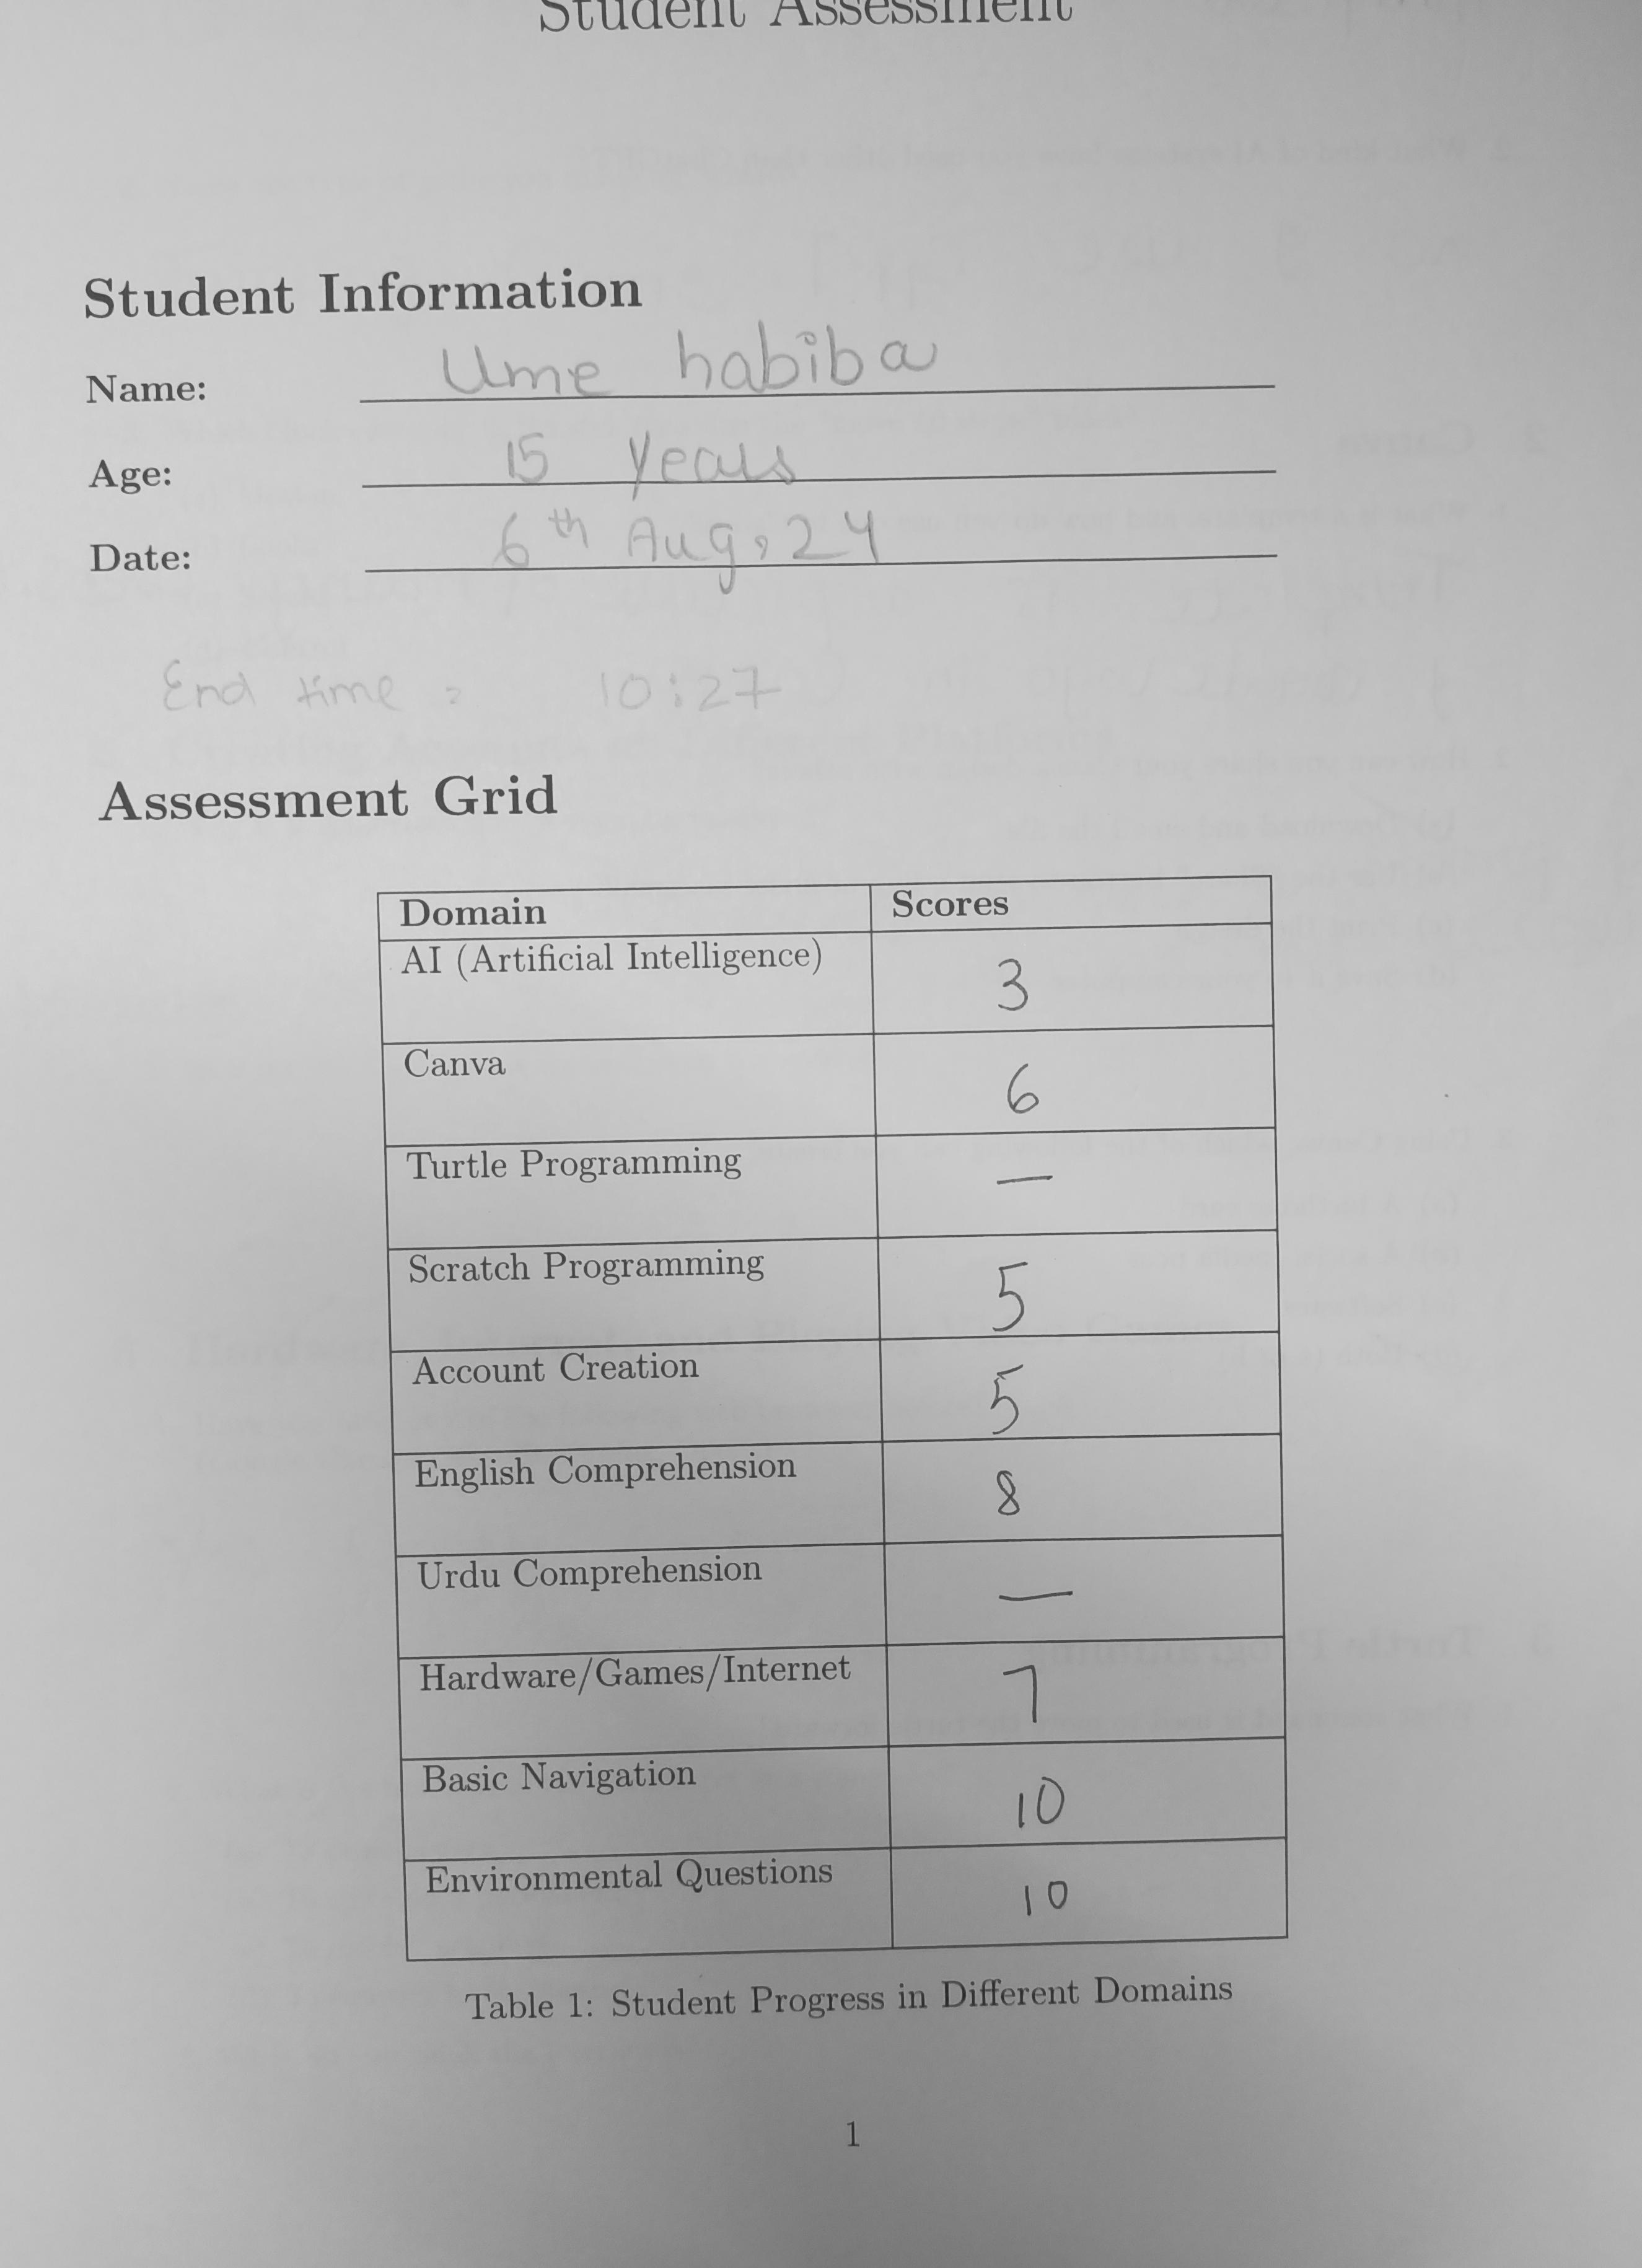 Student Assessment
Student Information
Name: Ume habiba
Age: 15 years
Date: 6th Aug, 24
End time = 10:27
Assessment Grid
Domain Scores
AI (Artificial Intelligence) 3
Canva 6
Turtle Programming —
Scratch Programming 5
Account Creation 5
English Comprehension 8
Urdu Comprehension —
Hardware/Games/Internet 7
Basic Navigation 10
Environmental Questions 10
Table 1: Student Progress in Different Domains
1